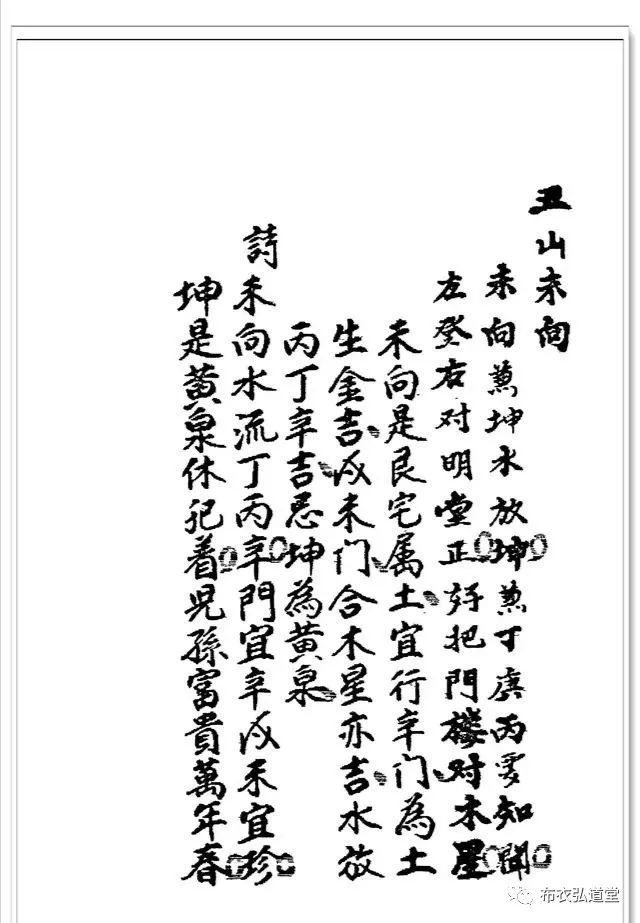 丑山未向
未向兼坤水放坤兼丁庚丙要知聞
左登右对明堂正好把門楼对木星
未向是艮宅属土宜行辛门為土
生金吉戌未门合木星亦吉水放
丙丁辛吉忌坤為黄泉
詩未向水流丁丙辛門宜辛戌未宜珍
坤是黄泉休犯着児孫富貴萬年春
布衣弘道堂